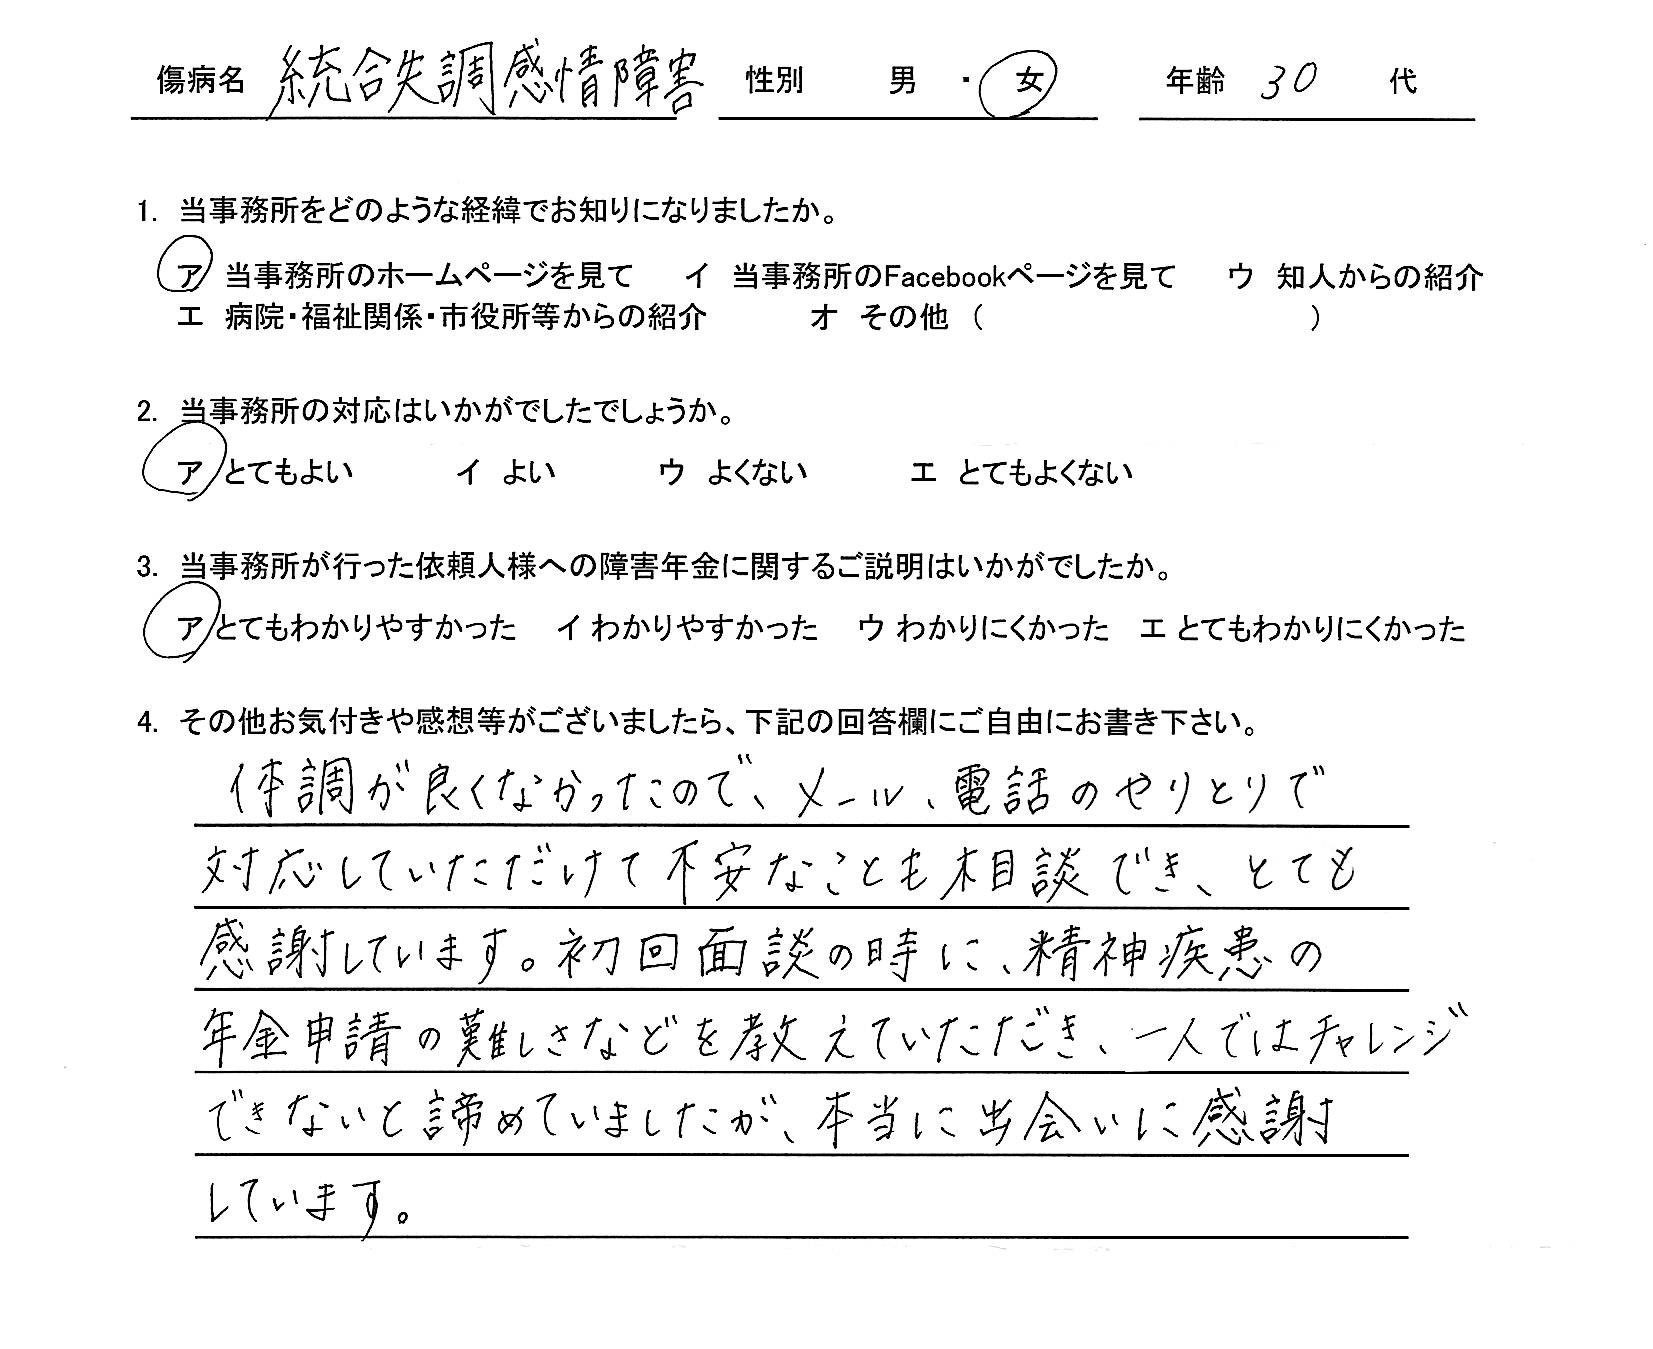 傷病名 統合失調感情障害 性別 男 ・ 女 年齢 30 代
1. 当事務所をどのような経緯でお知りになりましたか。
ア 当事務所のホームページを見て イ 当事務所のFacebookページを見て ウ 知人からの紹介
エ 病院・福祉関係・市役所等からの紹介 オ その他 ( )
2. 当事務所の対応はいかがでしたでしょうか。
ア とてもよい イ よい ウ よくない エ とてもよくない
3. 当事務所が行った依頼人様への障害年金に関するご説明はいかがでしたか。
ア とてもわかりやすかった イ わかりやすかった ウ わかりにくかった エ とてもわかりにくかった
4. その他お気付きや感想等がございましたら、下記の回答欄にご自由にお書き下さい。
体調が良くなかったので、メール、電話のやりとりで
対応していただけて不安なことも相談でき、とても
感謝しています。初回面談の時に、精神疾患の
年金申請の難しさなどを教えていただき、一人ではチャレンジ
できないと諦めていましたが、本当に出会いに感謝
しています。